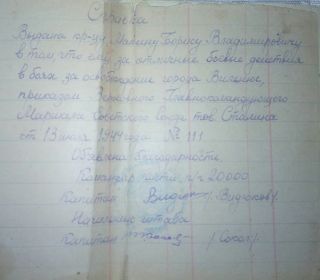 Справка
Выдана кр-цу Малину Борису Владимировичу
в том, что ему за отличные боевые действия
в боях за освобождение города Вильнюс,
приказом Верховного Главнокомандующего
Маршала Советского Союза тов Сталина
от 13 июля 1944 года № 111
Объявлена благодарность.
Командир части п/п 20000
Капитан
Начальник штаба
Капитан /Сокол/